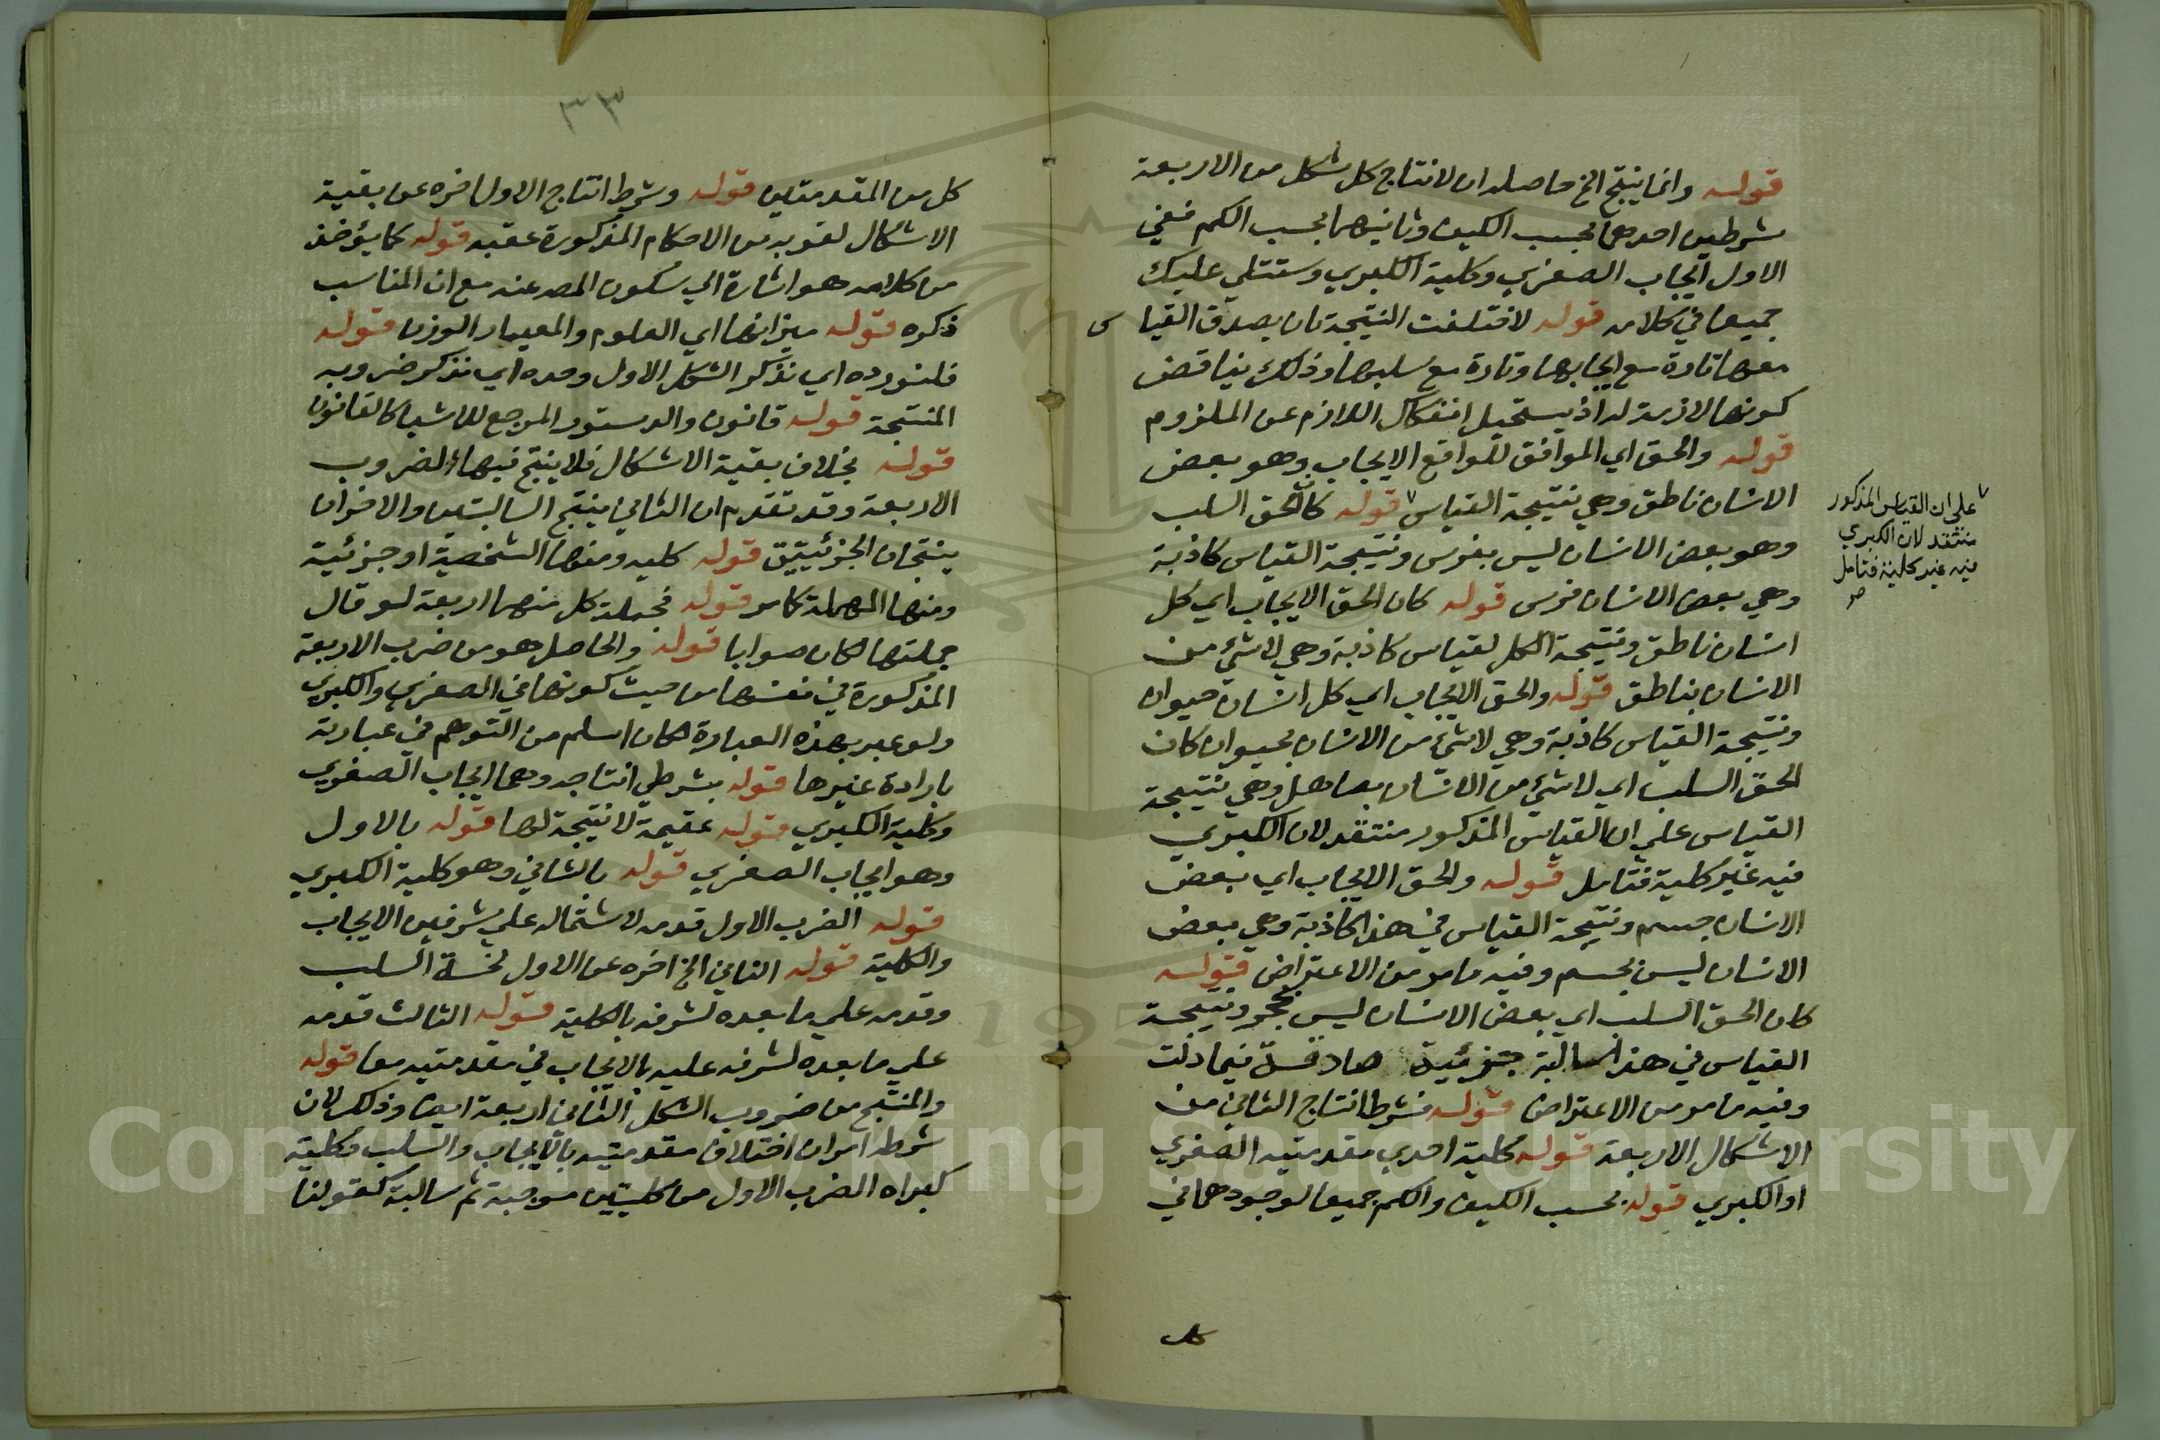 قوله وانما ينتج الخ حاصله ان لانتاج كل شكل من الاربعة
شرطين احدهما بحسب الكيف وثانيهما بحسب الكم ففي
الاول ايجاب الصغري وكلية الكبري وستتلي عليك
جميعها في كلامه قوله لاختلفت النتيجة بان يصدق القيا س
معها تارة مع ايجابها وتارة مع سلبها وذلك يناقض
كونها لازمة له اذ يستحيل انفكاك اللازم عن الملزوم
قوله والحق اي الموافق للواقع الايجاب وهو بعض
الانسان ناطق وهي نتيجة القياس قوله كان الحق السلب
وهو بعض الانسان ليس بفرس ونتيجة القياس كاذبة
وهي بعض الانسان فرس قوله كان الحق الايجاب اي كل
انسان ناطق ونتيجة الكل لقياس كاذبة وهي لا شئ من
الانسان بناطق قوله والحق الايجاب اي كل انسان حيوان
ونتيجة القياس كاذبة وهي لا شئ من الانسان بحيوان كان
الحق السلب اي لا شئ من الانسان بصاهل وهي نتيجة
القياس علي ان القياس المذكور منتقد لان الكبري
فيه غير كلية فتامل قوله والحق الايجاب اي بعض
الانسان جسم ونتيجة القياس في هذا كاذبة وهي بعض
الانسان ليس بجسم وفيه ما مر من الاعتراض قوله
كان الحق السلب اي بعض الانسان ليس بحجر ونتيجة
القياس في هذا سالبة جزئية صادقة فيما دلت
وفيه ما مر من الاعتراض قوله فشرط انتاج الثاني من
الاشكال الاربعة قوله كلية احدي مقدمتيه الصغري
او الكبري قوله بحسب الكيف والكم جميعا لوجودهما في
كل
علي ان القياس المذكور
منتقد لان الكبري
فيه غير كلية فتامل
صح
٣٣
كل من المقدمتين قوله وشرط انتاج الاول اخره عن بقية
الاشكال لقوبه من الاحكام المذكورة عقبه قوله كما يؤخذ
من كلامه هو اشارة الي سكون المص عنه مع ان المناسب
ذكره قوله ميزانها اي العلوم والمعيار الوزن قوله
فلنورده اي نذكر الشكل الاول وحده اي نذكر ضروبه
المنتجة قوله قانون والدستور المرجع للاشيا كالقانون
قوله بخلاف بقية الاشكال فلا ينتج فيها الضروب
الاربعة وقد تقدم ان الثاني ينتج السالبتين والاخران
ينتجان الجزئيتين قوله كليه ومنها الشخصية او جزئية
ومنها المهملة كما مر قوله فجملة كل منهما اربعة لو قال
جملتها لكان صوابا قوله والحاصل هو من ضرب الاربعة
المذكورة في نفسها من حيث كونها في الصغري والكبري
ولو عبر بهذه العبارة لكان اسلم من التوهم في عبارته
بارادة غيرها قوله بشرطي انتاجه وهما ايجاب الصغري
وكلية الكبري قوله عقيمة لا نتيجة لها قوله بالاول
وهو ايجاب الصغري قوله بالثاني وهو كلية الكبري
قوله الضرب الاول قدمه لاشتماله علي شرفين الايجاب
والكلية قوله الثاني الخ اخره عن الاول لخسة السلب
وقدمه علي ما بعده لشرفه بالكلية قوله الثالث قدمه
علي ما بعده لشرفه عليه بالايجاب في مقدمتيه معا قوله
والمنتج من ضروب الشكل الثاني اربعة ايضا وذلك لان
شرطه امران اختلاف مقدمتيه بالايجاب والسلب وكلية
كبراه الضرب الاول من كليتين موجبة ثم سالبة كقولنا
Copyright © King Saud University